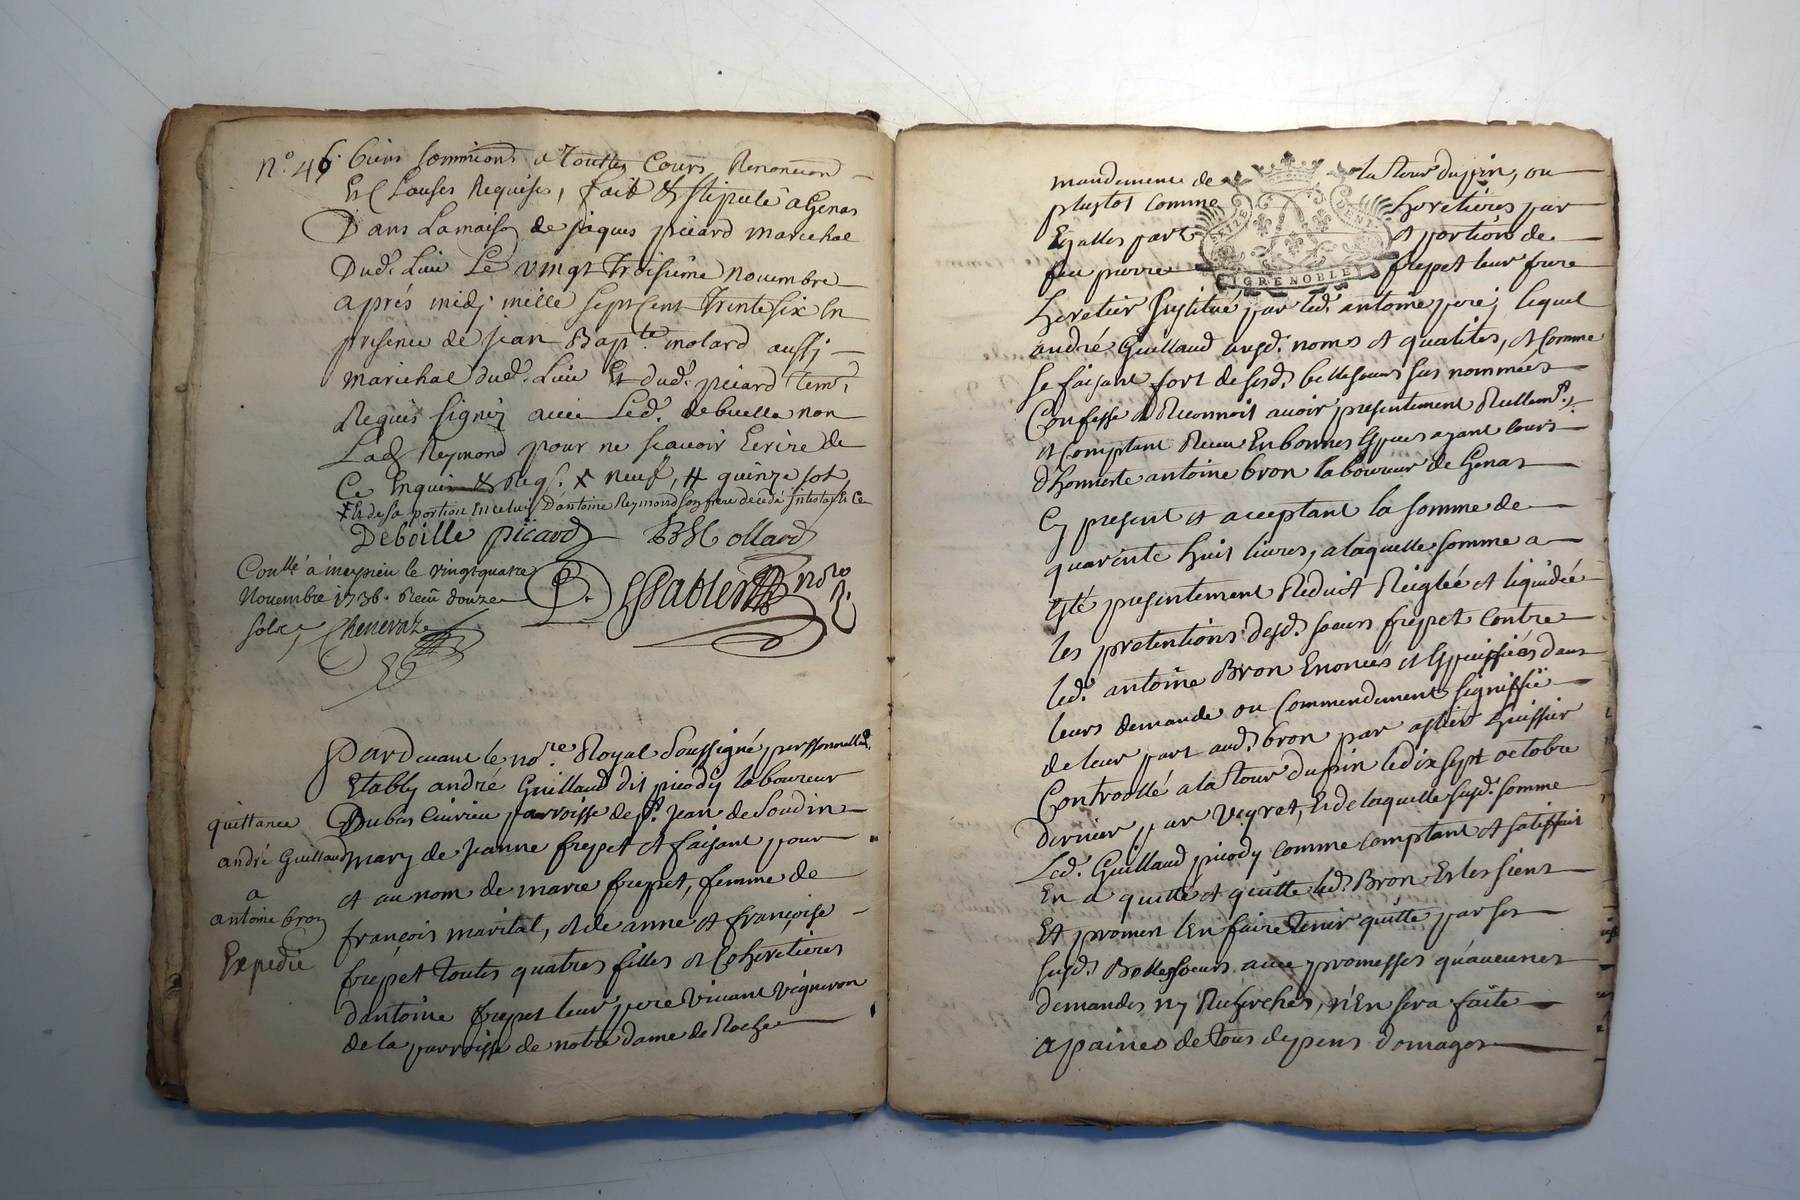 n.° 46.
biens soemmions a Touttes Cours, Renonciaon
Et Clauses Requises, fait & stipullé a Genas
Dans La maison de jaques picard marechal
Dud. Lieu Le vingt troisieme novembre
aprés midj mille sept cent trente six En
presence de jean Bapt.te molard aussj
marechal dud. Lieu Et dud. picard tem.
Requis signéz avec Led. debuelle non
Lad. Reymond pour ne scavoir Ecrire de
Ce Enquis & Req. x neuf, # quinze sol
x Et de sa portion En celuy D'antoine Reymond son frere decedé Intestat Et Ce
Deboille picard BMollard
Conllé à meypieu le vingt quatre
Novembre 1736. Receu douze
sols Chenevaz
Sablier nore
Pardevant le no.re Royal Soussigné personnellem.
Etably andré Guillaud dit picody laboureur
Dubas Civrieu parroisse de S.t Jean de Soudin
mary de jeanne frepet et faisant pour
et au nom de marie frepet, femme de
françois marital, et de anne et françoise
frepet toutes quatres filles et Coheretieres
dantoine frepet leur pere vivant vigneron
de la parroisse de notre dame de Roche
quittance
andré Guillaud
a
antoine bron
Expedié
mandement de la tour dupin, ou
plustot comme heretieres par
Egalles parts et portions de
feu pierre frepet leur frere
SEIZE DENI
GRENOBLE
heretier Institué par led. antoine pere, lequel
andré Guillaud ausd. noms et qualites, et comme
se faisant fort desesd. bellesoeurs sus nommées
Confesse & Reconnoit avoir presentement Reellem.t
et Comptant Receu En bonnes Especes ayant cours
d'honneste antoine bron laboureur de Genas
Cy present et acceptant la somme de
quarente huit livres, a laquelle somme a
Esté presentement Reduit Reiglée et liquidée
les pretentions desd. soeurs frepet contre
led. antoine Bron Enoncés et Speciffiées dans
leurs demande ou Commendement signiffié
de leur part aud. bron par astier huissier
Controollé a la tour dupin le dix sept octobre
dernier par veyret, Et de laquelle susd. somme
Led. Guillaud picody comme comptant et satisffait
En a quitté et quitte led. Bron Et les siens
Et promet l'En faire tenir quitte par ses
susd. Bellessoeurs avec promesses qu'aucunes
demandes ny Recherches, n'En sera faite
apaines de tous depens domages